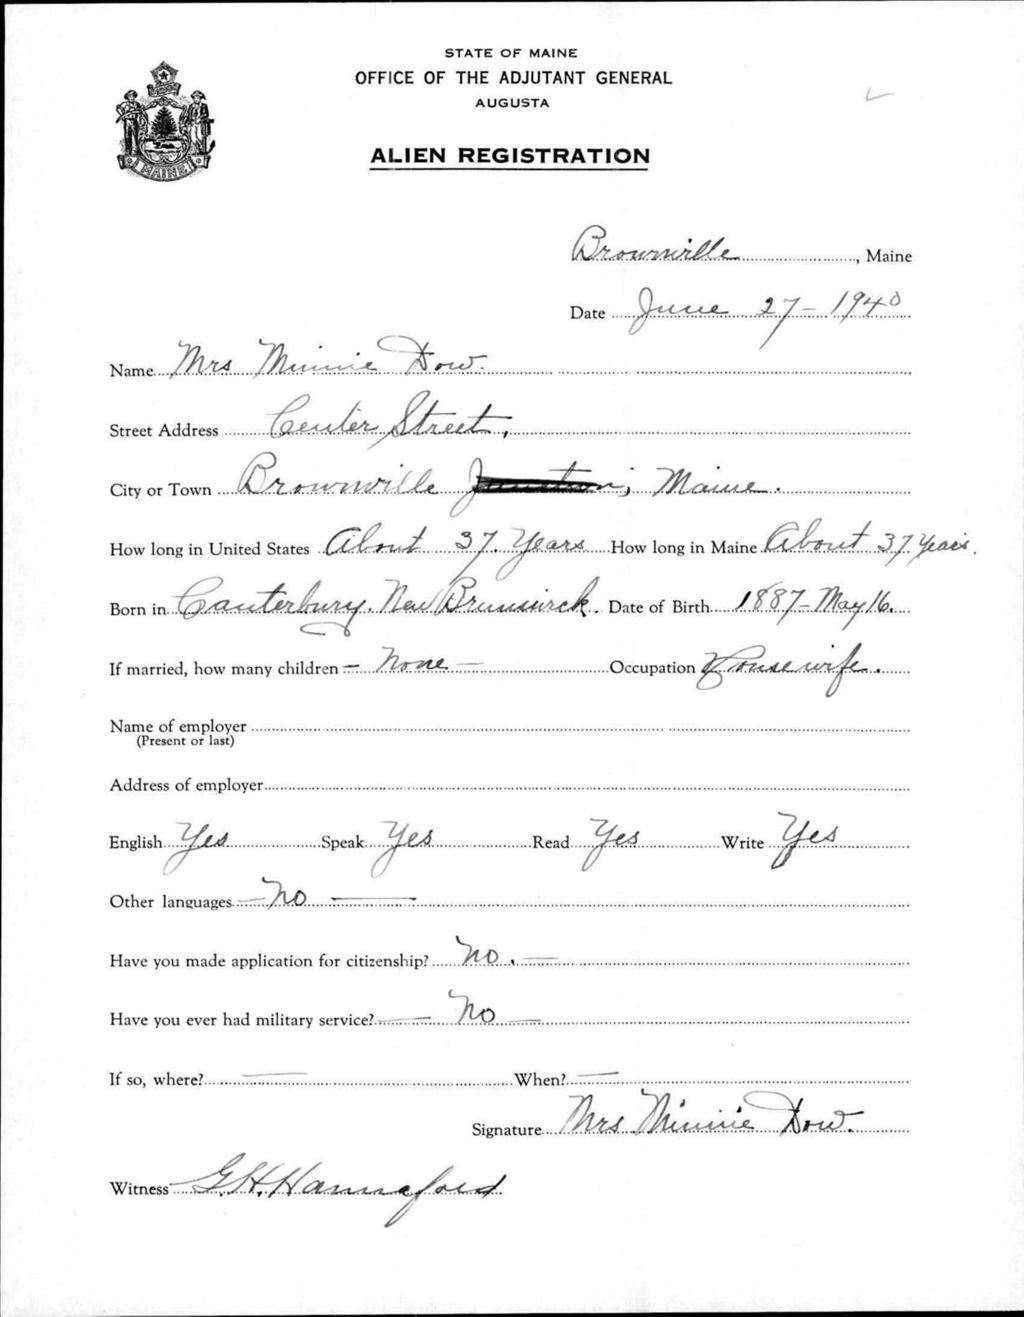 STATE OF MAINE
OFFICE OF THE ADJUTANT GENERAL
AUGUSTA
ALIEN REGISTRATION
MAINE
Brownville, Maine
Date June 27-1940
Name Mrs Minnie Dow.
Street Address Center Street,
City or Town Brownville Junction, Maine.
How long in United States About 37. Years How long in Maine About 37 Years.
Born in Canterbury. New Brunswick. Date of Birth 1887-May 16.
If married, how many children - None - Occupation Housewife.
Name of employer
(Present or last)
Address of employer
English Yes Speak Yes Read Yes Write Yes
Other languages - No -
Have you made application for citizenship? No. -
Have you ever had military service? - No -
If so, where? - When? -
Signature Mrs Minnie Dow.
Witness G.H. Hannaford